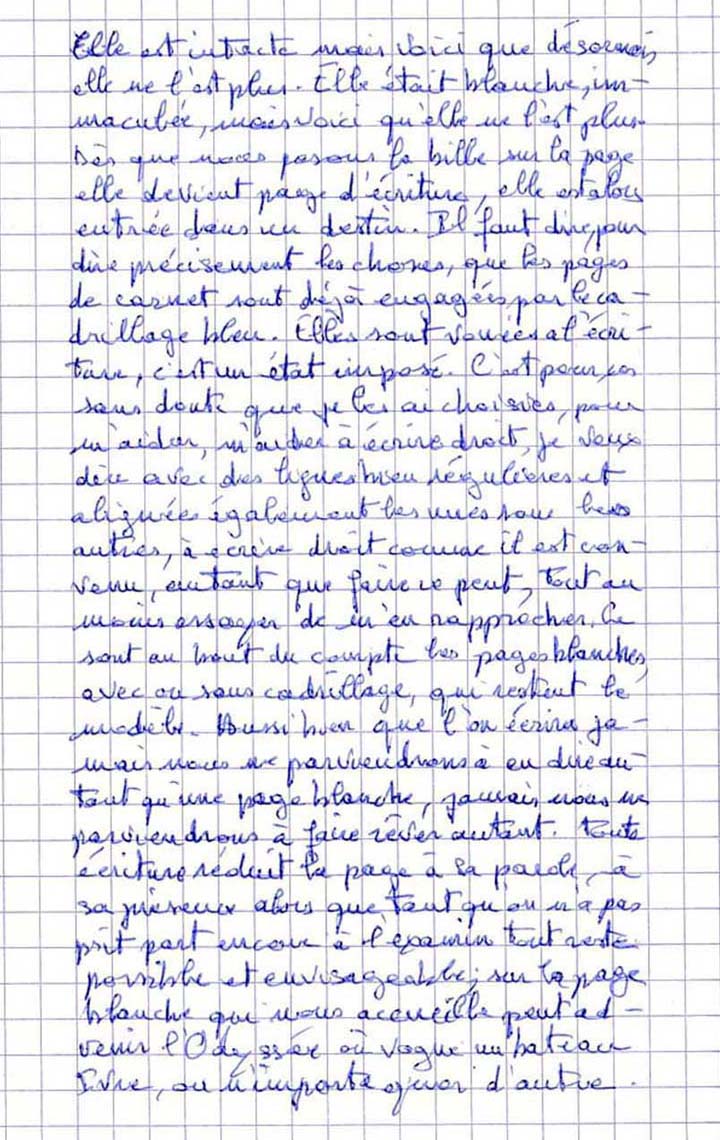 Elle est intacte mais voici que désormais
elle ne l'est plus. Elle était blanche, im-
maculée, mais voici qu'elle ne l'est plus.
Dès que nous posons la bille sur la page
elle devient page d'écriture, elle est alors
entrée dans un destin. Il faut dire, pour
dire précisement les choses, que les pages
de carnet sont déjà engagées par le ca-
drillage bleu. Elles sont vouées a l'écri-
ture, c'est un état imposé. C'est pour ça
sans doute que je les ai choisies, pour
m'aider, m'aider à écrire droit, je veux
dire avec des lignes bien régulières et
alignées également les unes sous les
autres, à écrire droit comme il est con-
venu, autant que faire ce peut, tout au
moins essayer de m'en rapprocher. Ce
sont au bout du compte les pages blanches,
avec ou sans cadrillage, qui restent le
modèle. Aussi bien que l'on écrira ja-
mais nous ne parviendrons à en dire au-
tant qu'une page blanche, jamais nous ne
parviendrons à faire rêver autant. Toute
écriture réduit la page à sa parole, à
sa alors que tant qu'on n'a pas
prit part encore à l'examin tout reste
possible et envisageable; sur la page
blanche qui nous accueille peut ad-
venir l'Odyssée où vogue un bateau
Ivre, ou n'importe quoi d'autre.